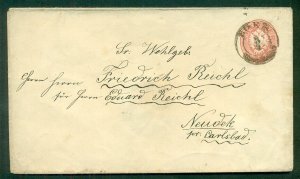 Sr. Wohlgeb.
Herrn Herrn Friedrich Reichl
für Herrn Eduard Reichl
Neudek
pr. Carlsbad.